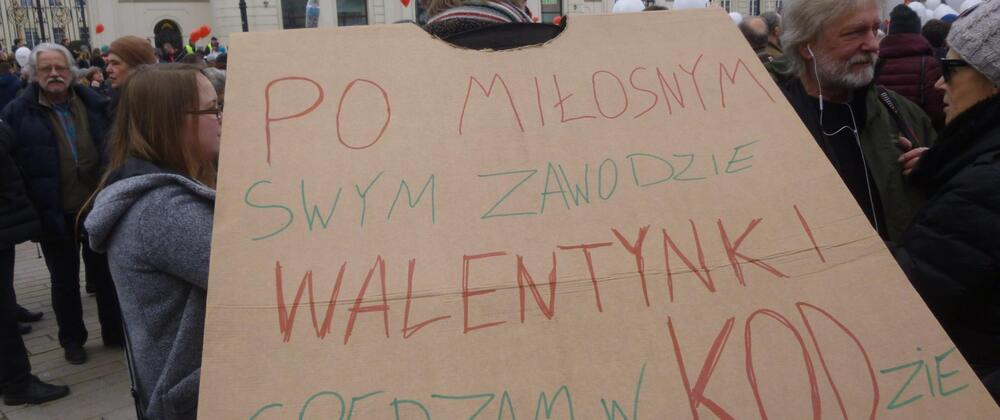 PO MIŁOSNYM
SWYM ZAWODZIE
WALENTYNKI
SPĘDZAM W KODZIE